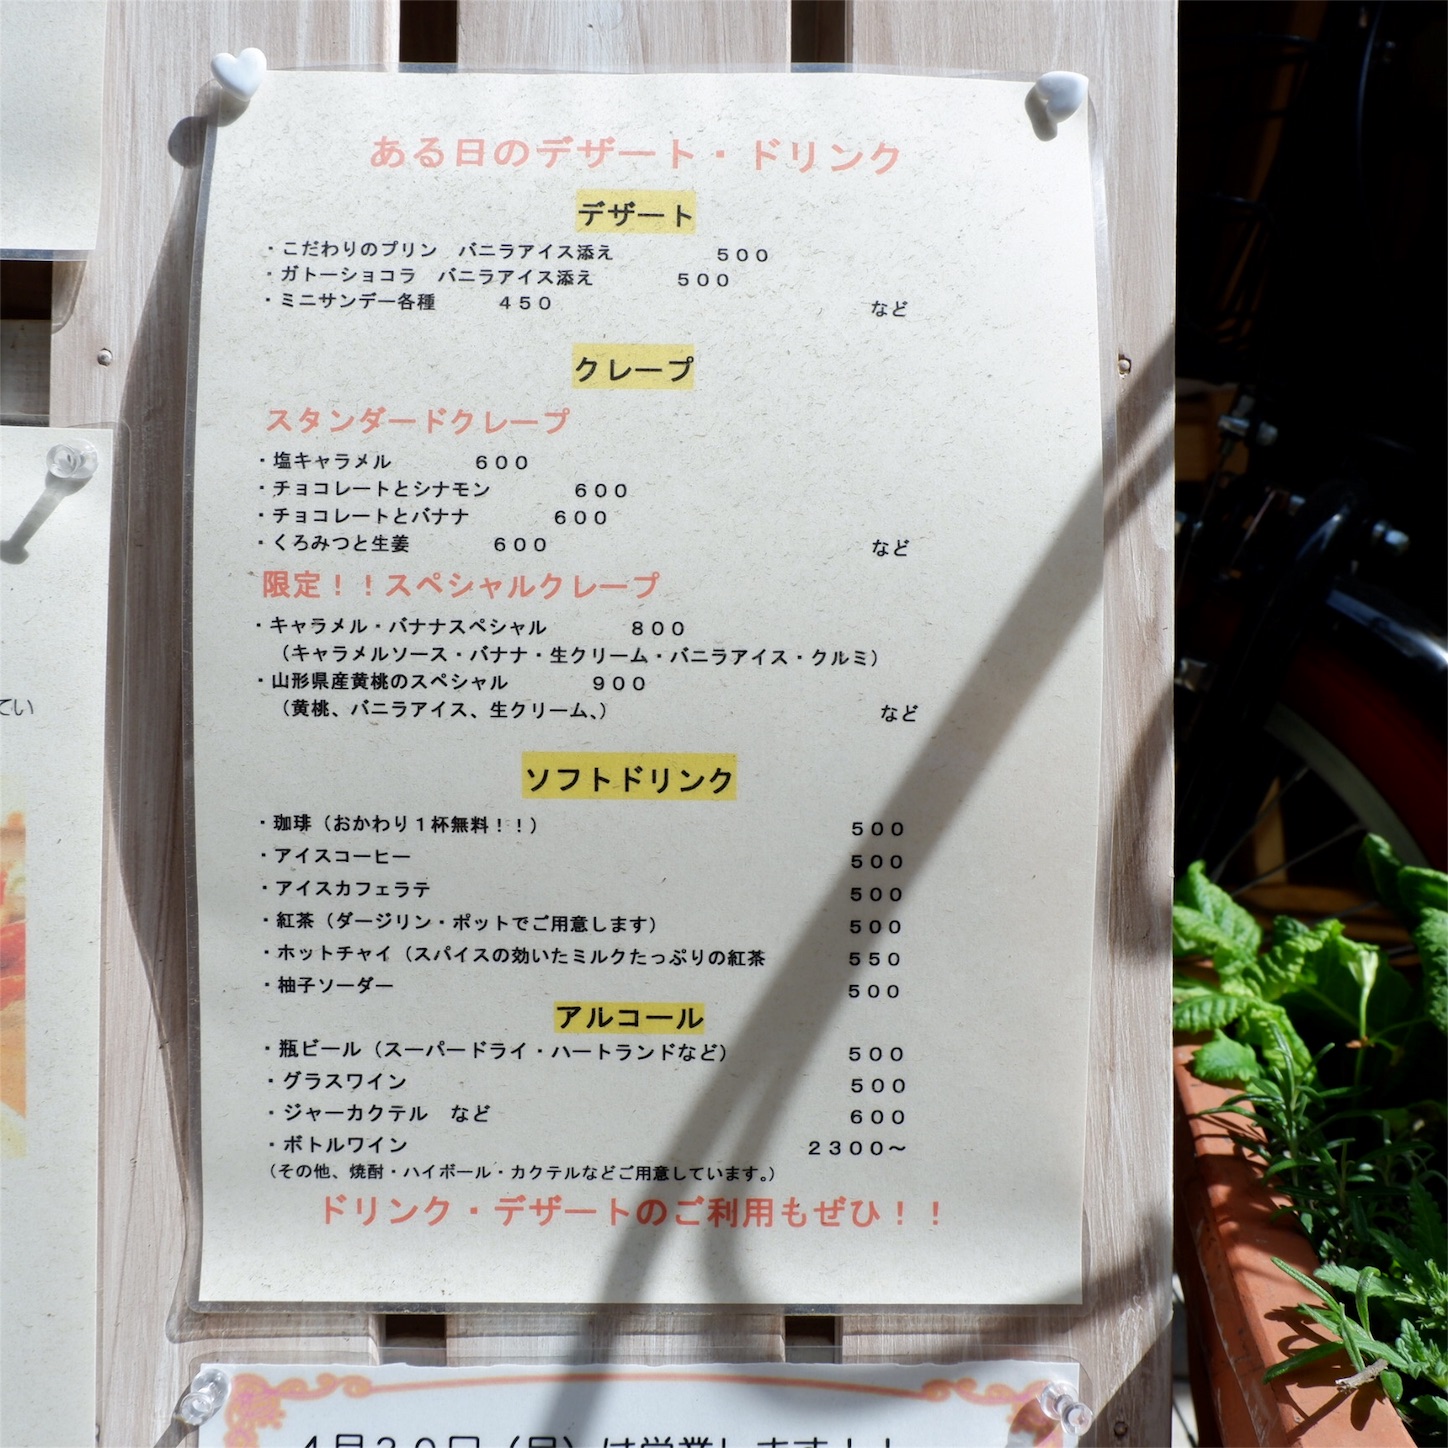 ある日のデザート・ドリンク
デザート
・こだわりのプリン　バニラアイス添え　５００
・ガトーショコラ　バニラアイス添え　５００
・ミニサンデー各種　４５０　など
クレープ
スタンダードクレープ
・塩キャラメル　６００
・チョコレートとシナモン　６００
・チョコレートとバナナ　６００
・くろみつと生姜　６００　など
限定！！スペシャルクレープ
・キャラメル・バナナスペシャル　８００
（キャラメルソース・バナナ・生クリーム・バニラアイス・クルミ）
・山形県産黄桃のスペシャル　９００
（黄桃、バニラアイス、生クリーム、）　など
ソフトドリンク
・珈琲（おかわり１杯無料！！）　５００
・アイスコーヒー　５００
・アイスカフェラテ　５００
・紅茶（ダージリン・ポットでご用意します）　５００
・ホットチャイ（スパイスの効いたミルクたっぷりの紅茶　５５０
・柚子ソーダー　５００
アルコール
・瓶ビール（スーパードライ・ハートランドなど）　５００
・グラスワイン　５００
・ジャーカクテル　など　６００
・ボトルワイン　２３００～
（その他、焼酎・ハイボール・カクテルなどご用意しています。）
ドリンク・デザートのご利用もぜひ！！
てい
４月３０日（月）は営業します！！